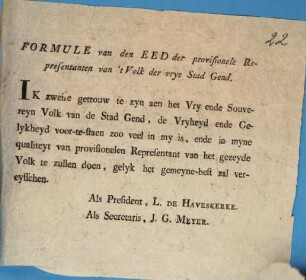 22
FORMULE van den EED der provisionele Re-
presentanten van 't Volk der vrye Stad Gend.
IK zweire getrouw te zyn aen het Vry ende Souve-
reyn Volk van de Stad Gend, de Vryheyd ende Ge-
lykheyd voor-te-staen zoo veel in my is, ende in myne
qualiteyt van provisionelen Representant van het gezeyde
Volk te zullen doen, gelyk het gemeyne-best zal ver-
eysschen.
Als President, L. DE HAVESKERKE.
Als Secretaris, J. G. MEYER.